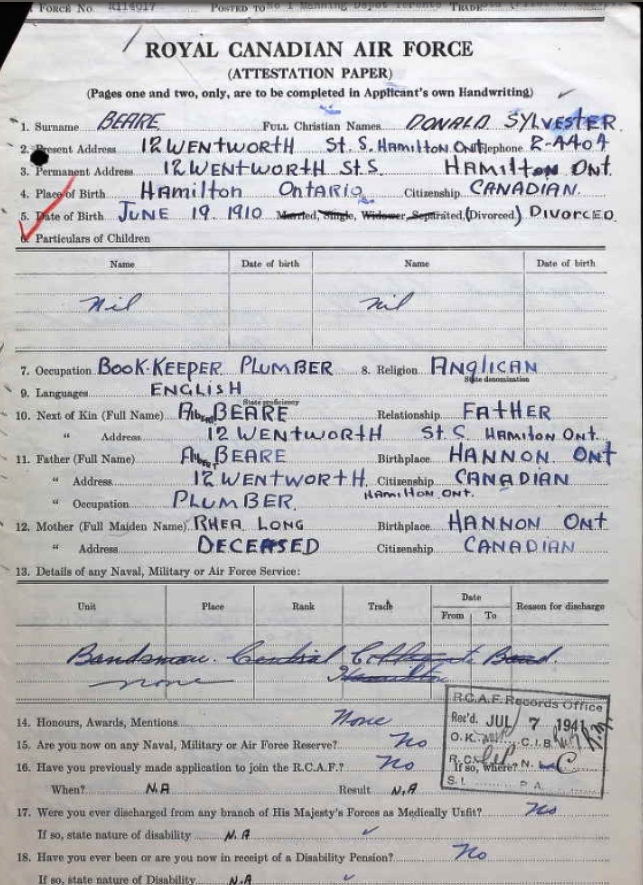 FORCE No. R114917 POSTED TO No 1 Manning Depot Toronto TRADE
ROYAL CANADIAN AIR FORCE
(ATTESTATION PAPER)
(Pages one and two, only, are to be completed in Applicant's own Handwriting)
1. Surname BEARE FULL Christian Names DONALD SYLVESTER
2. Present Address 12 WENTWORTH ST. S. HAMILTON ONT Telephone 2-4404
3. Permanent Address 12 WENTWORTH ST S. HAMILTON ONT.
4. Place of Birth HAMILTON ONTARIO Citizenship CANADIAN.
5. Date of Birth JUNE 19. 1910 Married, Single, Widower, Separated, (Divorced) DIVORCED
6. Particulars of Children
Name Date of birth Name Date of birth
Nil nil
7. Occupation BOOK-KEEPER PLUMBER 8. Religion ANGLICAN
State denomination
9. Languages ENGLISH
State proficiency
10. Next of Kin (Full Name) BEARE Relationship FATHER
" Address 12 WENTWORTH ST S. HAMILTON ONT.
11. Father (Full Name) BEARE Birthplace HANNON ONT
" Address 12 WENTWORTH. Citizenship CANADIAN
HAMILTON. ONT.
" Occupation PLUMBER.
12. Mother (Full Maiden Name) RHEA LONG Birthplace HANNON ONT
" Address DECEASED Citizenship CANADIAN
13. Details of any Naval, Military or Air Force Service:
Unit Place Rank Trade Date From To Reason for discharge
Bandsman. Central Collegiate Band.
none Hamilton
14. Honours, Awards, Mentions None
R.C.A.F. Records Office
Rec'd. JUL 7 1941
O.K. C.I.B.
R.C. N.L.
S.I. P.A.
15. Are you now on any Naval, Military or Air Force Reserve? No
16. Have you previously made application to join the R.C.A.F.? No If so, where?
When? N.A Result N.A
17. Were you ever discharged from any branch of His Majesty's Forces as Medically Unfit? No
If so, state nature of disability N.A
18. Have you ever been or are you now in receipt of a Disability Pension? No
If so, state nature of Disability N.A